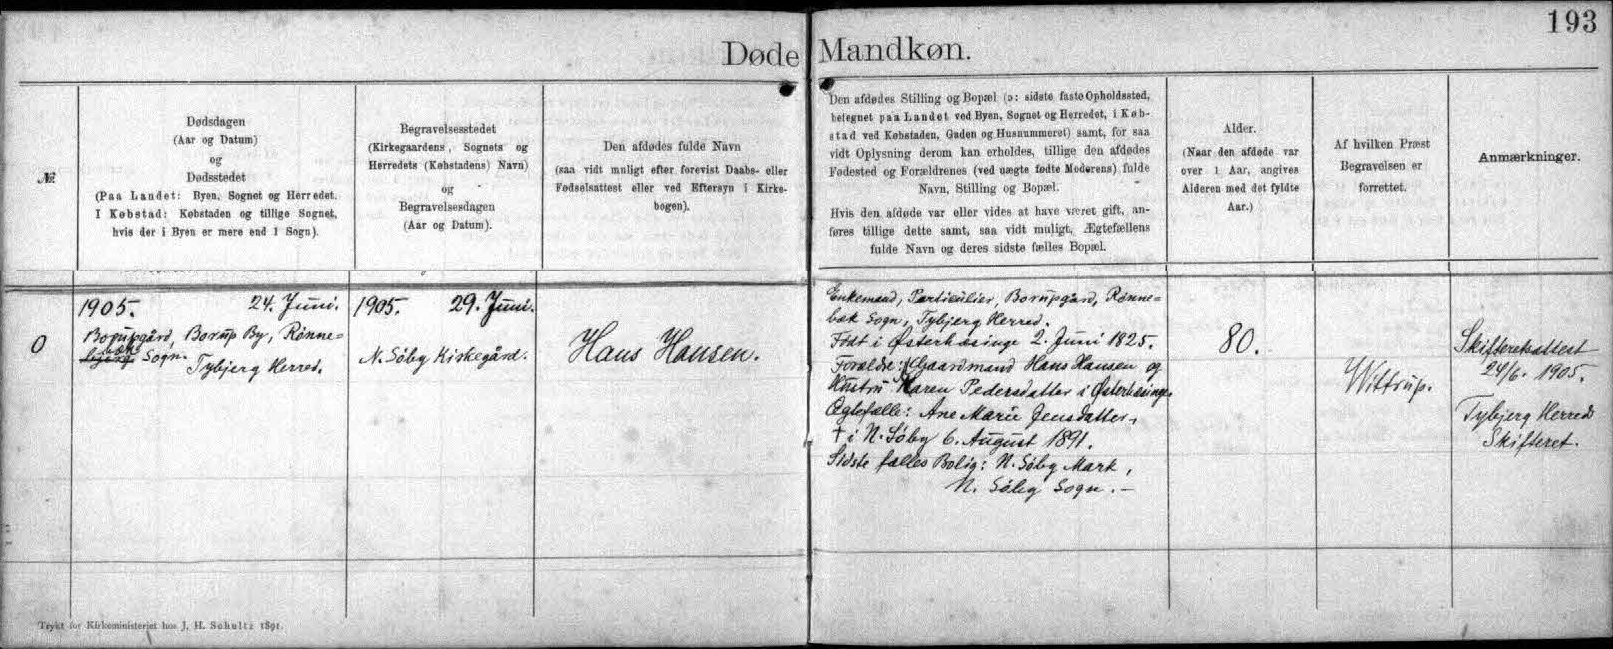 193
Døde Mandkøn.
№
Dødsdagen
(Aar og Datum)
og
Dødsstedet
(Paa Landet: Byen, Sognet og Herredet.
I Købstad: Købstaden og tillige Sognet,
hvis der i Byen er mere end 1 Sogn).
Begravelsesstedet
(Kirkegaardens, Sognets og
Herredets (Købstadens) Navn)
og
Begravelsesdagen
(Aar og Datum).
Den afdødes fulde Navn
(saa vidt muligt efter forevist Daabs- eller
Fødselsattest eller ved Eftersyn i Kirke-
bogen).
Den afdødes Stilling og Bopæl (ɔ: sidste faste Opholdssted,
betegnet paa Landet ved Byen, Sognet og Herredet, i Køb-
stad ved Købstaden, Gaden og Husnummeret) samt, for saa
vidt Oplysning derom kan erholdes, tillige den afdødes
Fødested og Forældrenes (ved uægte fødte Moderens) fulde
Navn, Stilling og Bopæl.
Hvis den afdøde var eller vides at have været gift, an-
føres tillige dette samt, saa vidt muligt, Ægtefællens
fulde Navn og deres sidste fælles Bopæl.
Alder.
(Naar den afdøde var
over 1 Aar, angives
Alderen med det fyldte
Aar.)
Af hvilken Præst
Begravelsen er
forrettet.
Anmærkninger.
0
1905. 24. Juni.
Borupgård, Borup By, Rønne-
bæk
bjerg Sogn. Tybjerg Herred.
1905. 29. Juni.
N. Søby Kirkegård.
Hans Hansen.
Enkemand, Partikulier, Borupgård, Rønne-
bæk Sogn, Tybjerg Herred.
Født i Østerhæsinge 2. Juni 1825.
Forældre: Gaardmand Hans Hansen og
Hustru Karen Pedersdatter i Østerhæsinge.
Ægtefælle: Ane Marie Jensdatter,
† i N. Søby 6. August 1891.
Sidste fælles Bolig: N. Søby Mark,
N. Søby Sogn. –
80.
Wittrup.
Skifteretsattest
29/6. 1905.
Tybjerg Herreds
Skifteret.
Trykt for Kirkeministeriet hos J. H. Schultz 1891.